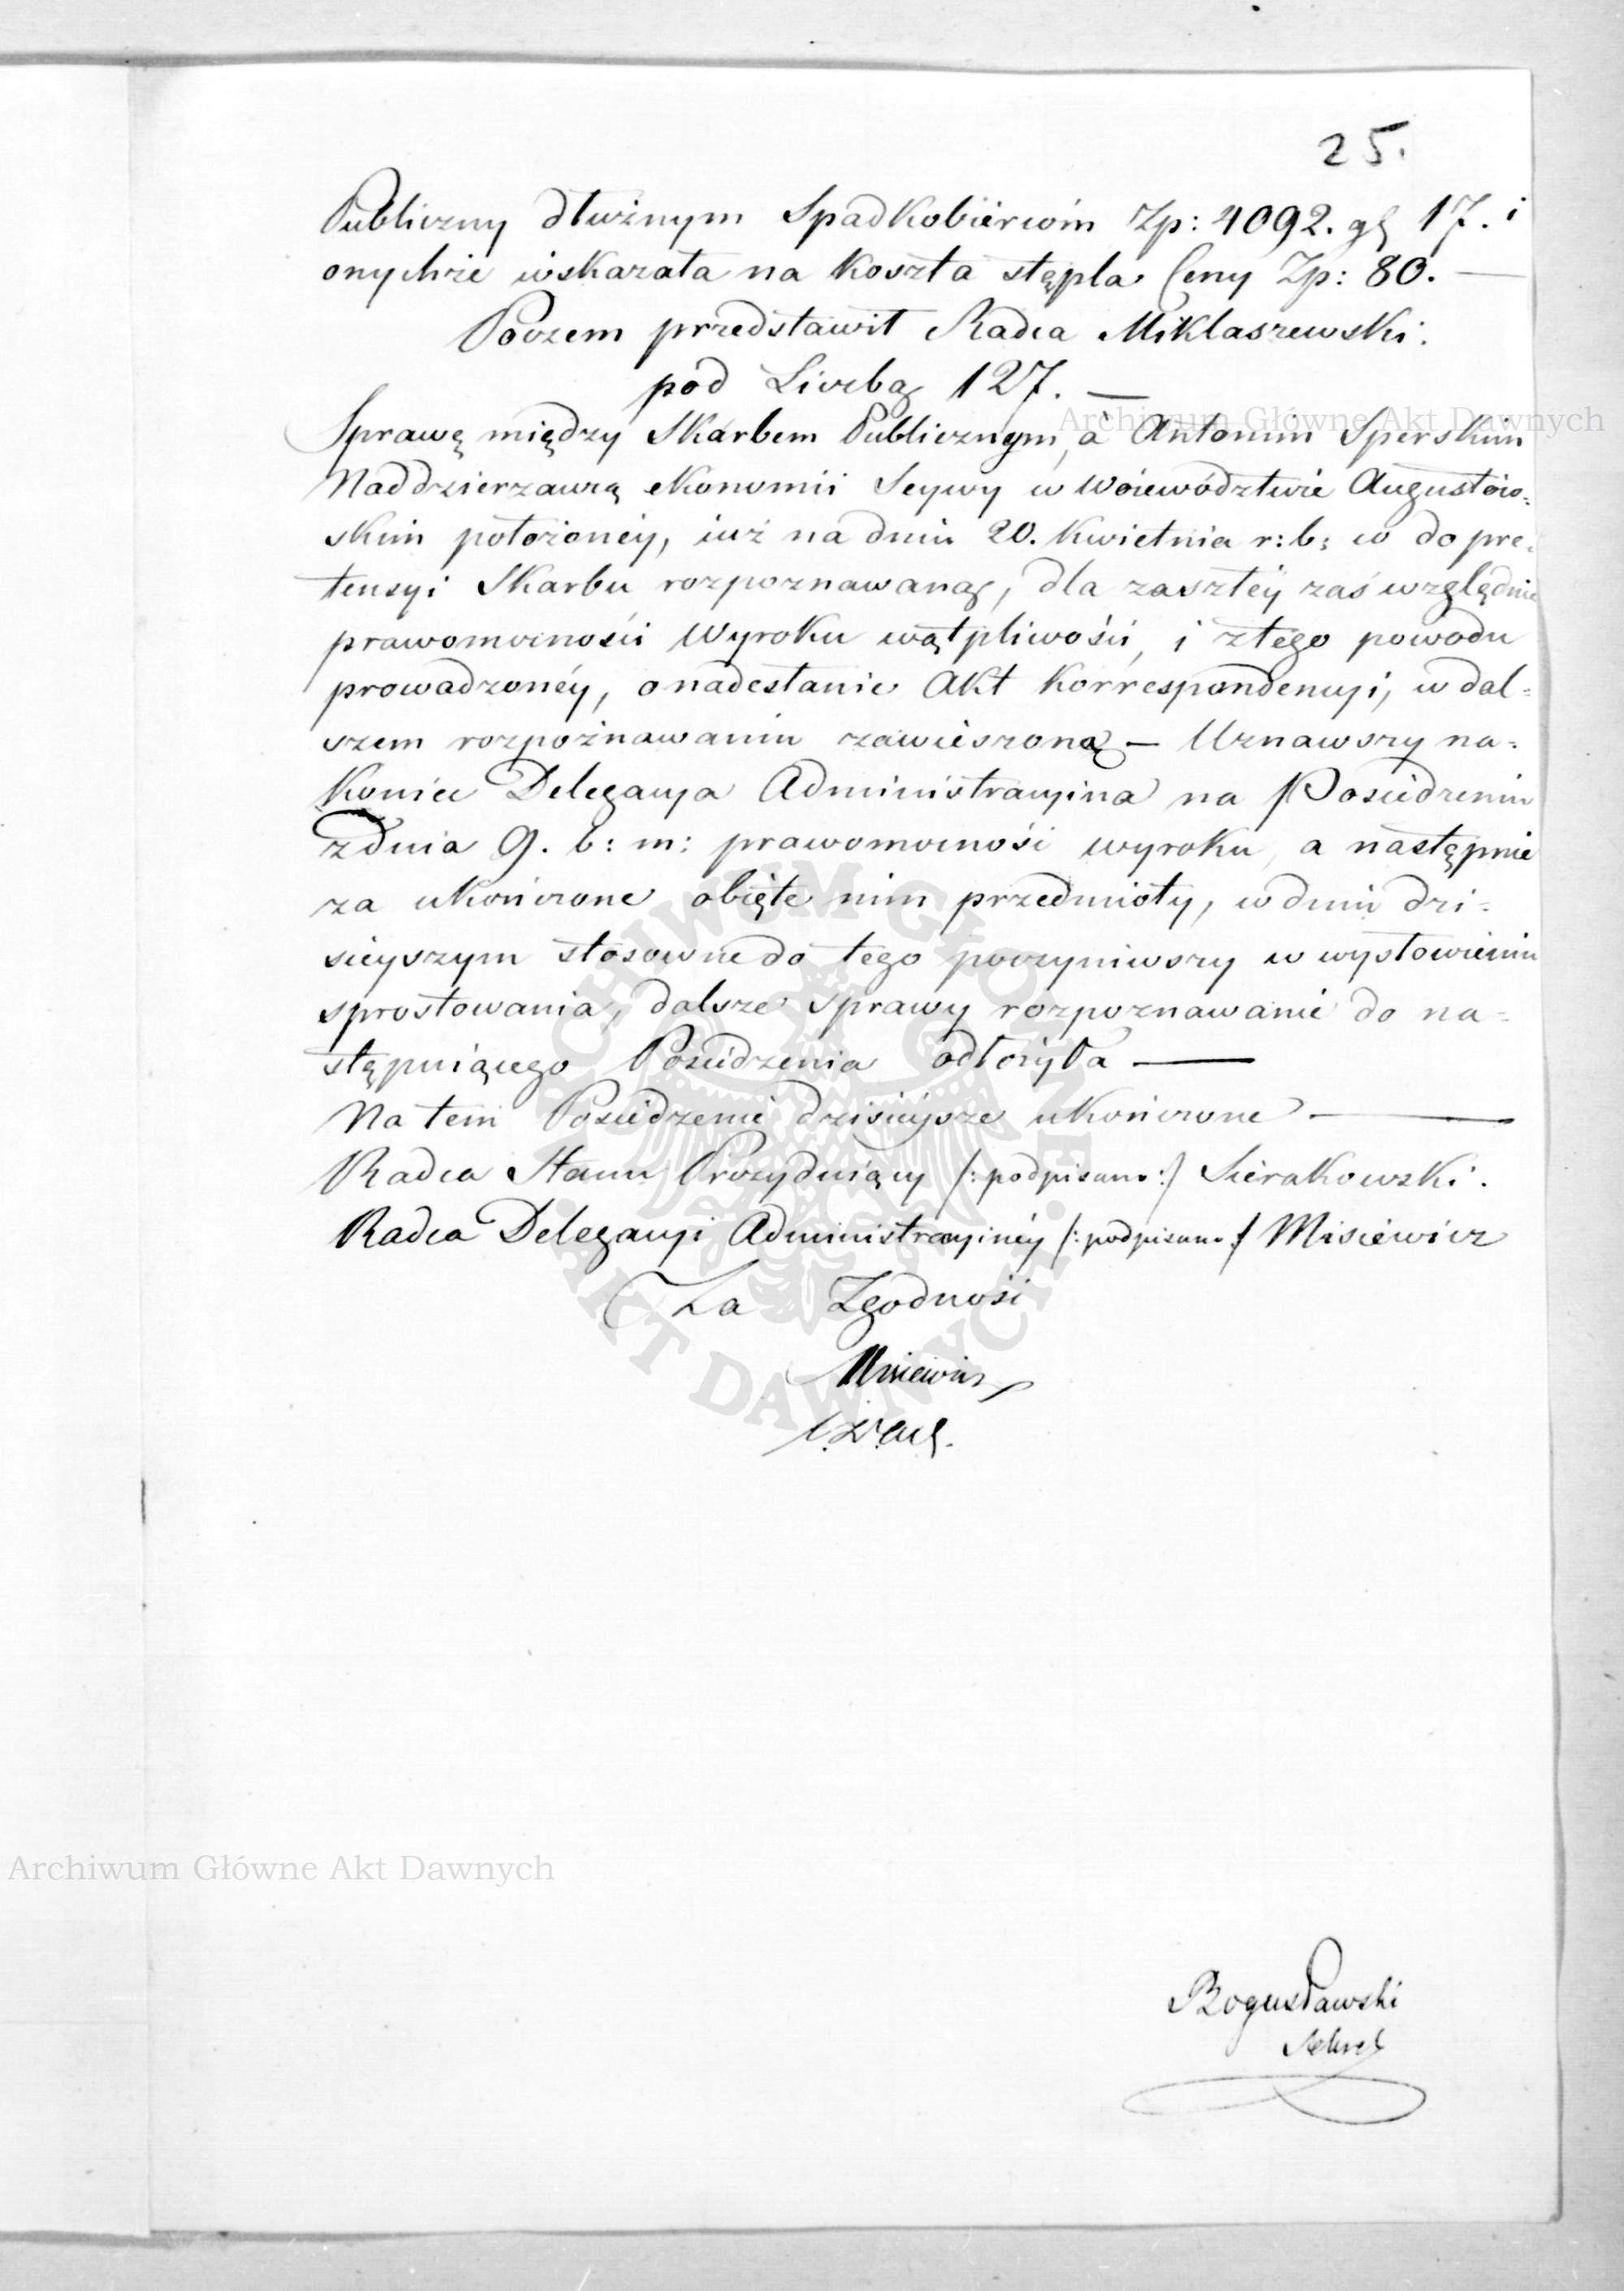 25.
Publiczny dłużnym Spadkobiercóm Zp: 4092. gr 17. i
onychże wskazała na koszta stępla Ceny Zp: 80. —
Poczem przedstawił Radca Miklaszewski.
pod Liczbą 127. —
Archiwum Główne Akt Dawnych
Sprawę między Skarbem Publicznym, a Antonim Sperskim
Naddzierzawcą ekonomii Seywy w Woiewództwie Augustow=
skim położonéy, iuż na dniu 20. Kwietnia r: b: w do pre=
tensyi Skarbu rozpoznawaną, dla zaszłéy zaś względnie
prawomocności Wyroku wątpliwości, i ztego powodu
prowadzonéy, o nadesłanie Akt korrespondencyi, w dal=
szem rozpoznawaniu zawieszoną — Uznawszy na=
koniec Delegacya Administracyina na Posiedzeniu
z dnia 9. b: m: prawomocność wyroku, a następnie
za ukończone obięte nim przedmioty, w dniu dzi=
sieyszym stosowne do tego poczyniwszy w wysłowieniu
sprostowania, dalsze sprawy rozpoznawanie do na=
stępuiącego Posiedzenia odłożyła —
Na tem Posiedzenie dzisieysze ukończone —
Radca Stanu Prezyduiący /: podpisano :/ Sierakowski.
Radca Delegacyi Administracyinéy /: podpisano :/ Misiewicz
Za Zgodność
Misiewicz
ARCHIWUM GŁÓWNE AKT DAWNYCH
Archiwum Główne Akt Dawnych
Bogusławski
Sekret